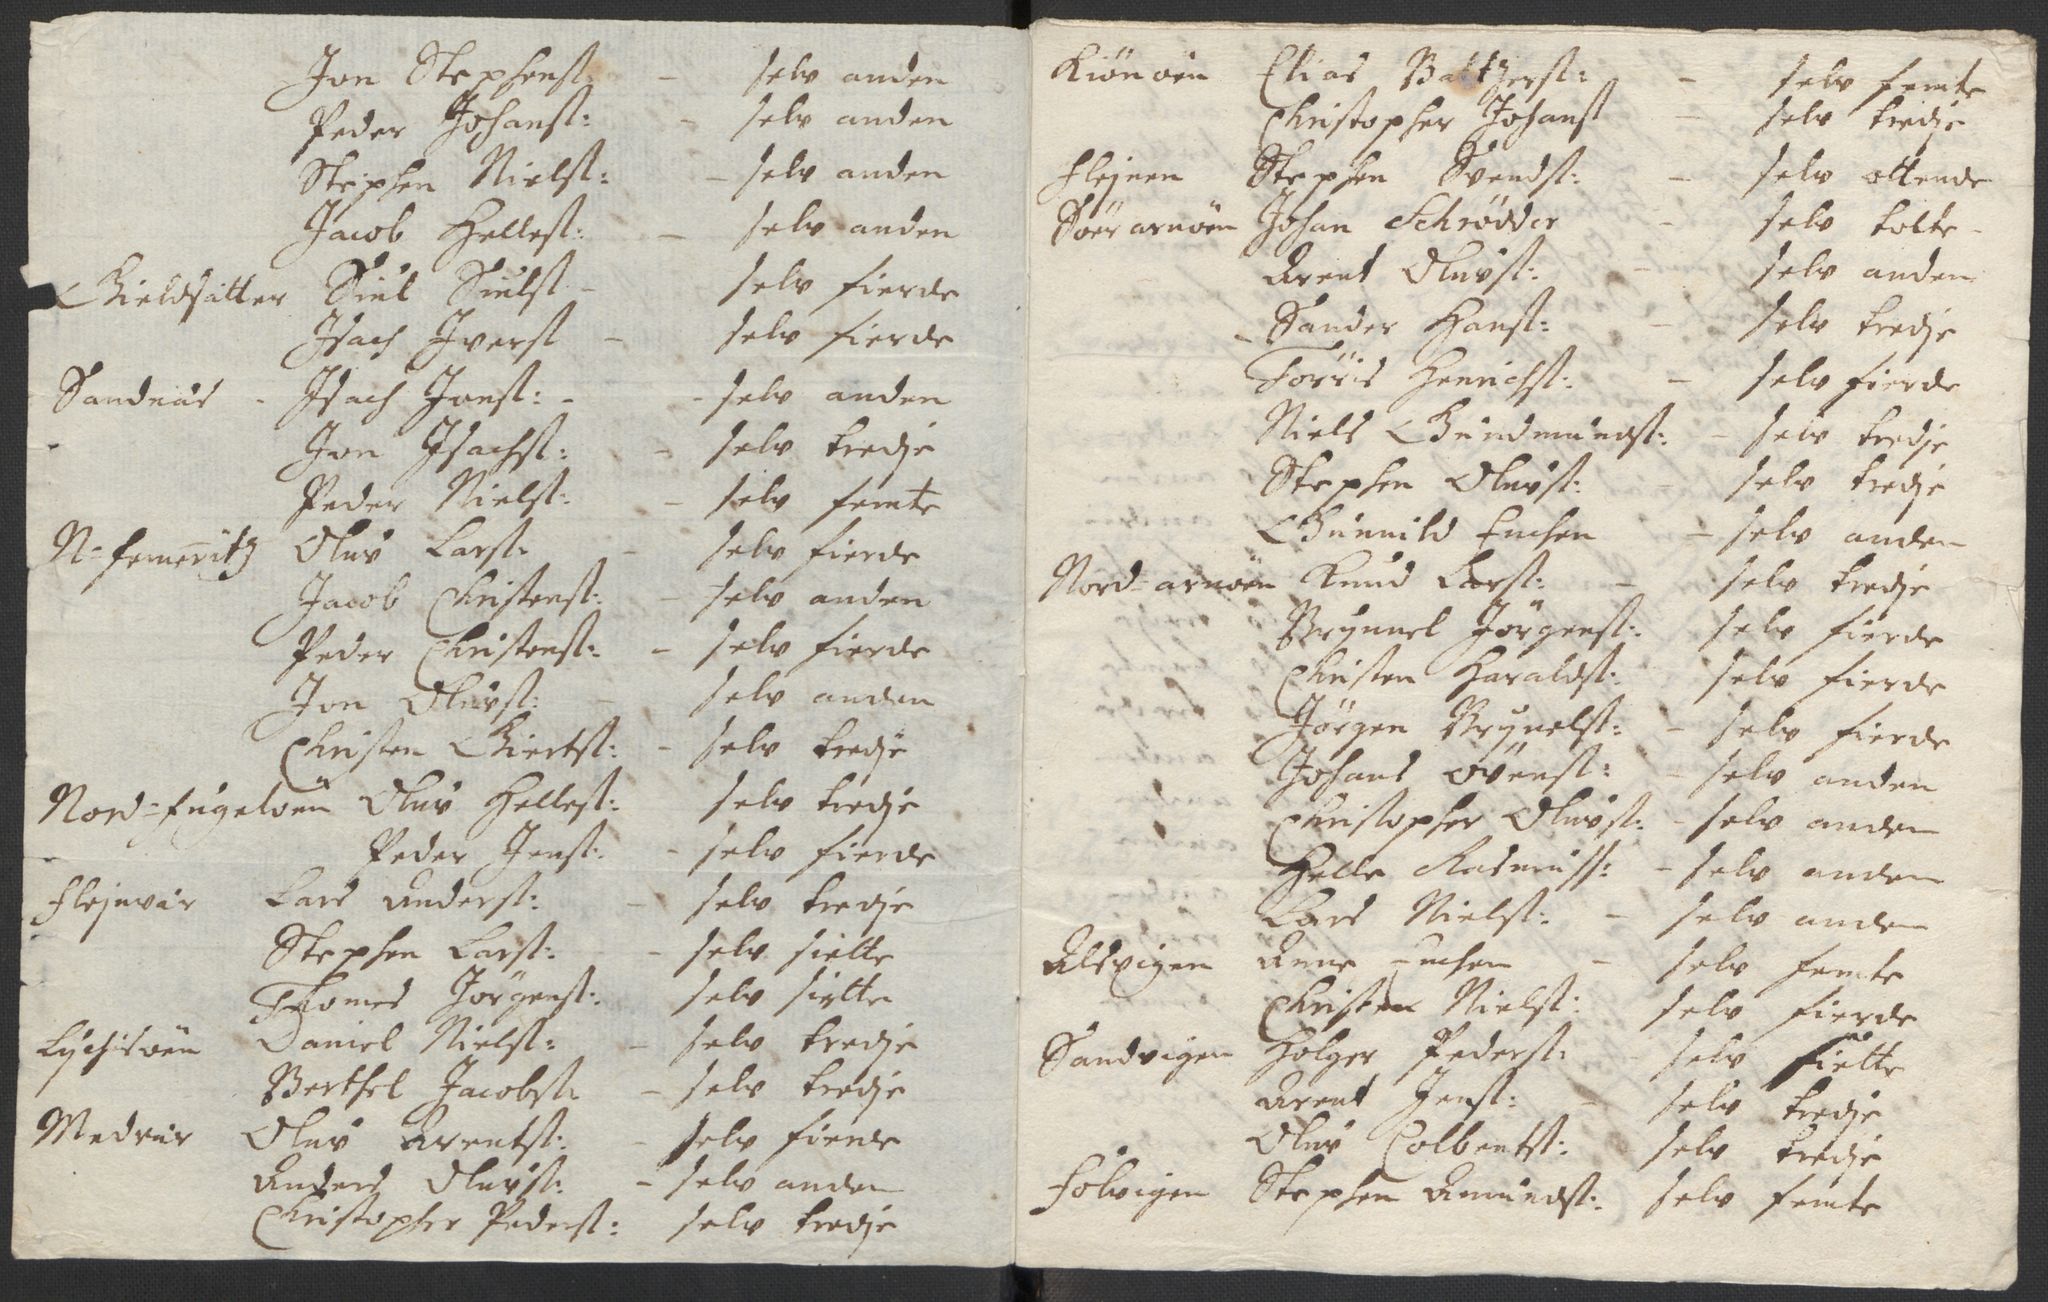 Jon Stephenst: - selv anden
Peder Johanst: - selv anden
Stephen Nielst: - selv anden
Jacob Hellest: - selv anden
Gieldsätter Siul Siulst - selv fierde
Isach Iverst - selv fierde
Sandnäs - Isach Jonst: - selv anden
Jon Isachst: - selv tredje
Peder Nielst: - selv femte
N: femeritz Oluv Larst: - selv fierde
Jacob Christenst: - selv anden
Peder Christenst: - selv fierde
Jon Oluvst: - selv anden
Christen Giertst: - selv tredje
Nord-Engeløen Oluv Hellest: selv tredje
Peder Jenst: - selv fierde
Flejnvär Lars Anderst: - selv tredje
Stephen Larst: - selv siette
Thomes Jörgenst: selv siette
Lychisøen Daniel Nielst: - selv tredje
Berthel Jacobst: - selv tredje
Medvär Oluv Arentst: - selv fierde
Anders Oluvst: - selv anden
Christopher Pederst: selv tredje
Kiönøen Elias Baltzerst: - selv femte
Christopher Johanst - selv tredje
Flejnen Stephen Svendst: - selv ottende
Søer arnøen Johan Schrødder - selv tolte -
Arent Oluvst: - selv anden
Sander Hanst: - selv tredje
Torris Henrichst: - selv fierde
Niels Gundmundst: - selv tredje
Stephen Oluvst: - selv tredje
Gunnild Enchen - selv anden
Nord-arnøen Knud Larst: - selv tredje
Brynnel Jörgenst: selv fierde
Christen Haraldst: selv fierde
Jørgen Brynelst: - selv fierde
Johans Øvenst: - selv anden
Christopher Oluvst: - selv anden
Helle Rasmusst: - selv anden
Lars Nielst: - selv anden
Alsvigen Anne Enchen - selv femte
Christen Nielst: selv fierde
Sandvigen Holger Pederst: selv siette
Arent Jenst: - selv tredje
Oluv Colbentst: selv tredje
Følvigen Stephen Amundst: selv femte